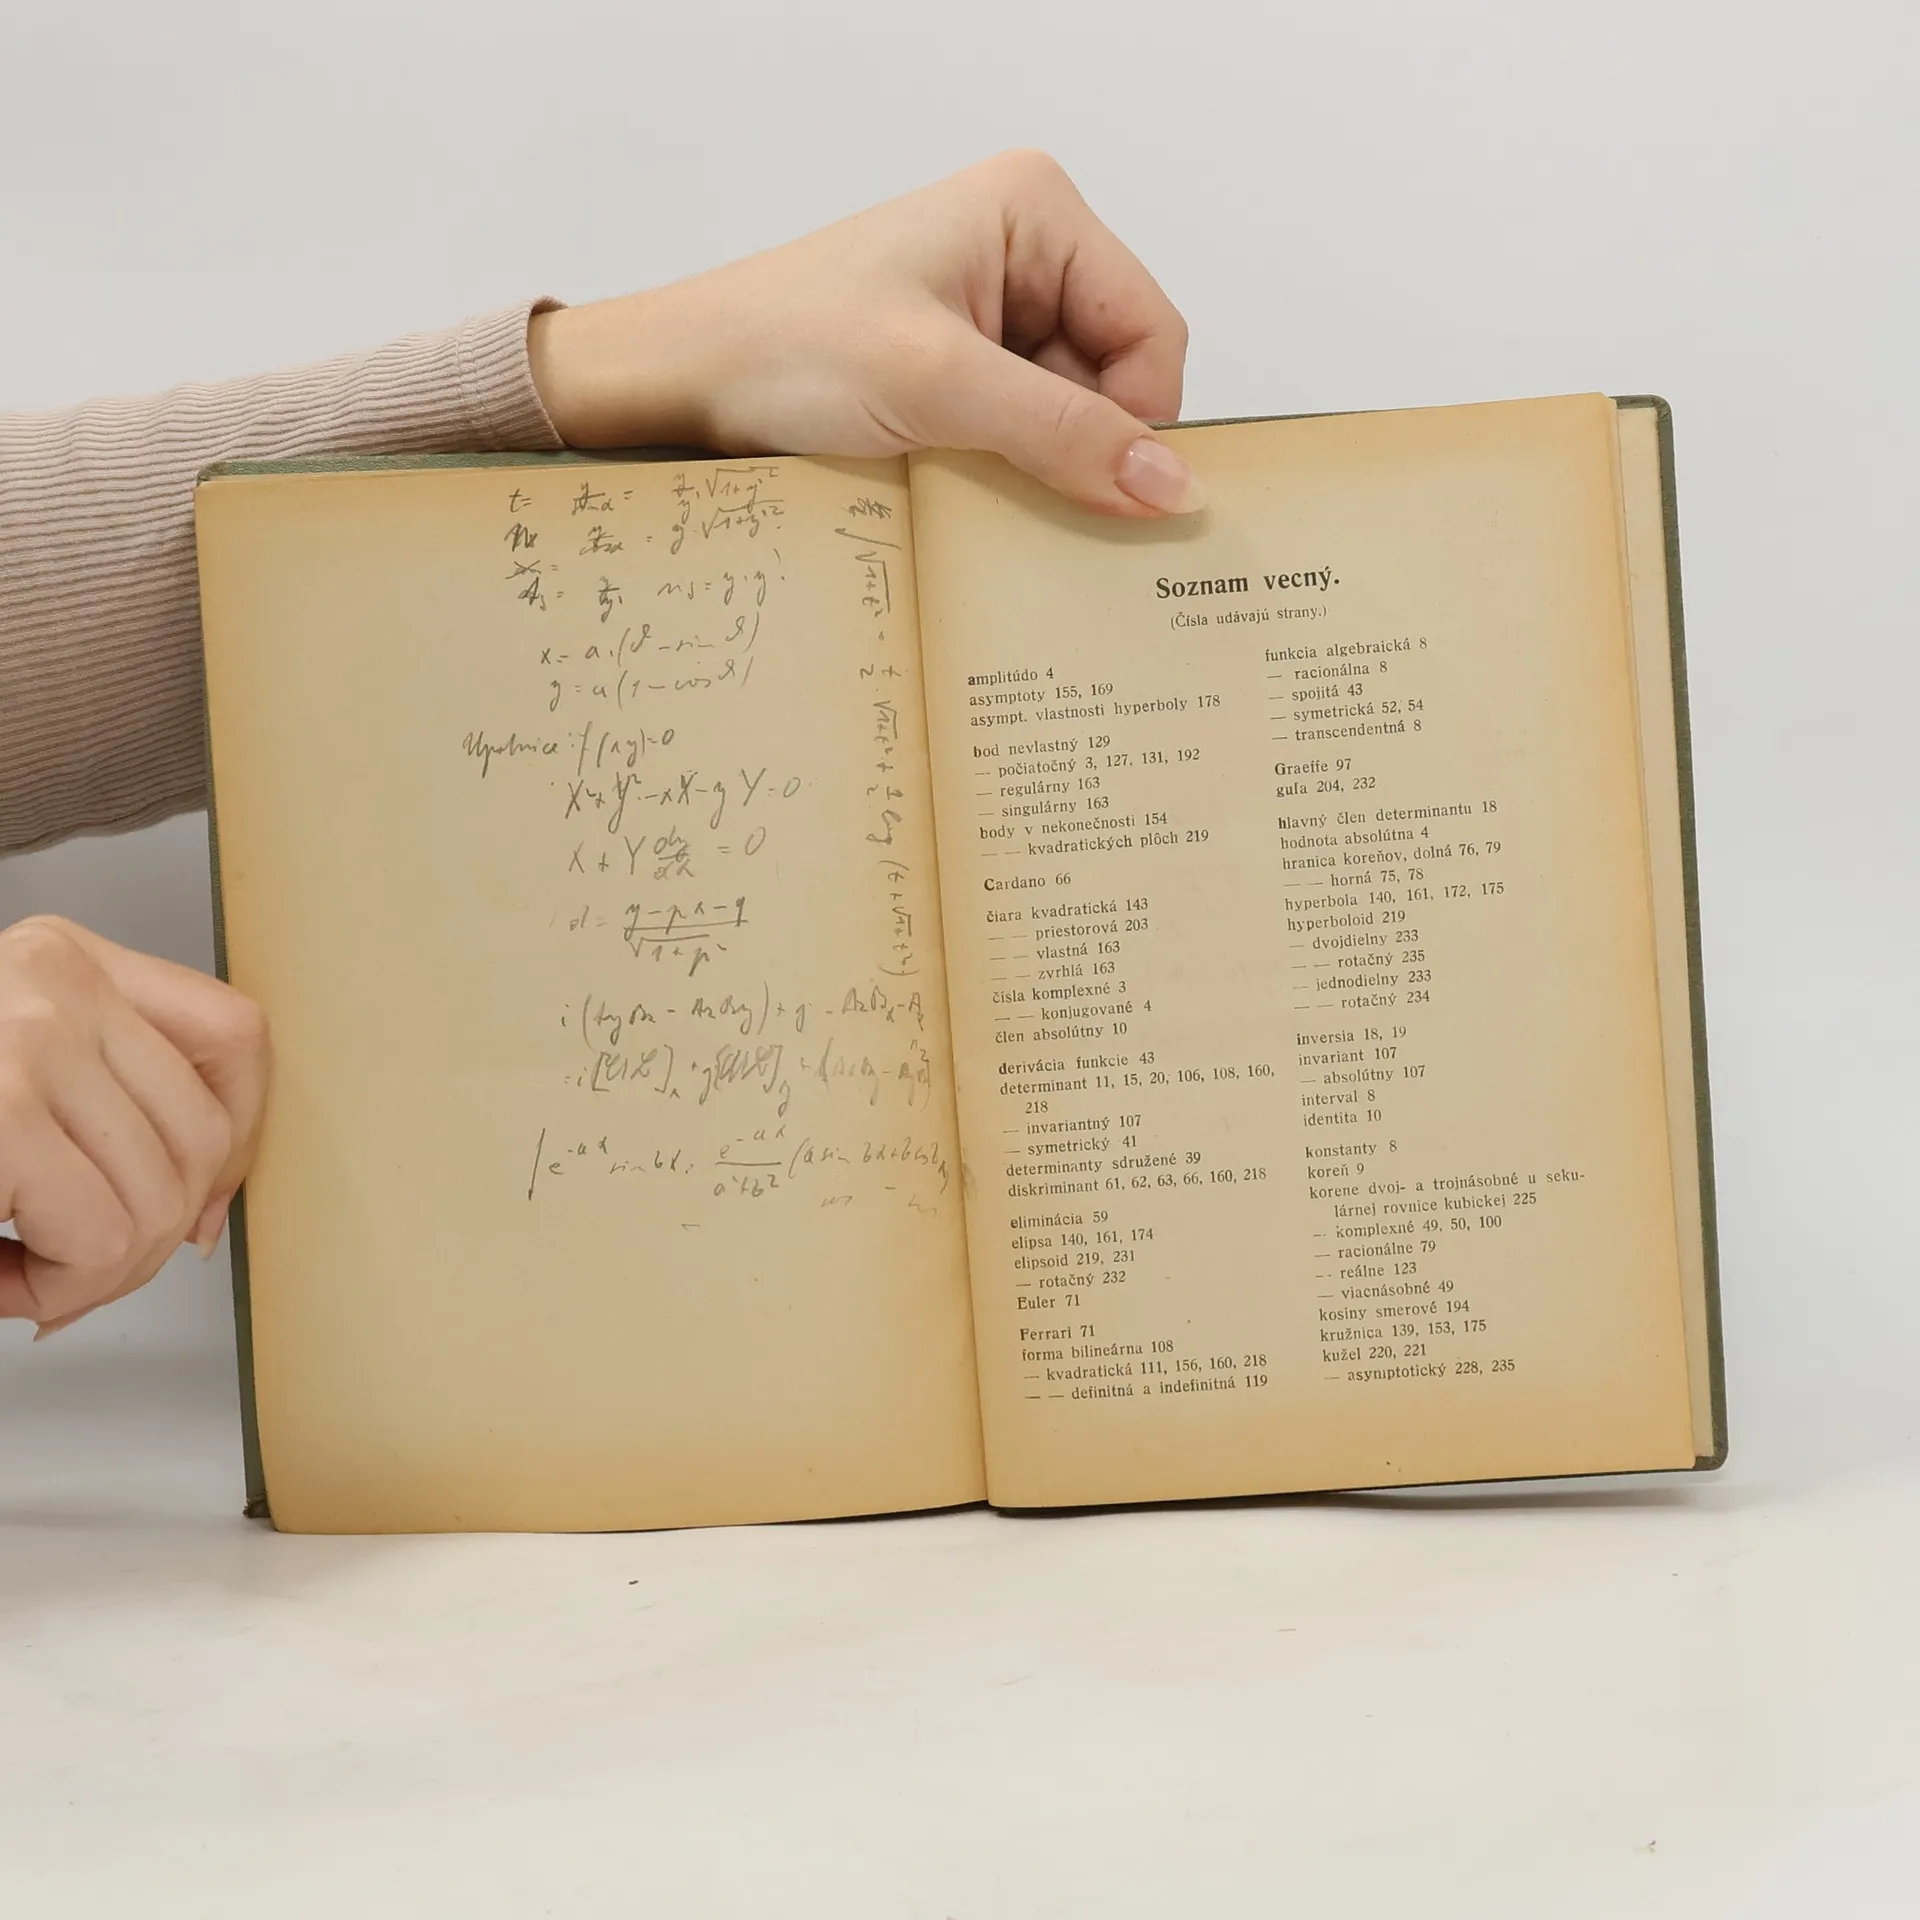 x = a.(ϑ - sin ϑ)
y = a(1 - cos ϑ)
Úpatnice : f(xy)=0
X²+Y²-xX-yY=0
X + Y dy/dx = 0
d = y-px-q / √1+p²
∫e^-ax sin bx = e^-ax / a²+b² (a sin bx + b cos bx)
∫√1+t² = t/2 . √1+t² + 1/2 log (t+√1+t²)
Soznam vecný.
(Čísla udávajú strany.)
amplitúdo 4
asymptoty 155, 169
asympt. vlastnosti hyperboly 178
bod nevlastný 129
— počiatočný 3, 127, 131, 192
— regulárny 163
— singulárny 163
body v nekonečnosti 154
— — kvadratických plôch 219
Cardano 66
čiara kvadratická 143
— — priestorová 203
— — vlastná 163
— — zvrhlá 163
čísla komplexné 3
— — konjugované 4
člen absolútny 10
derivácia funkcie 43
determinant 11, 15, 20, 106, 108, 160,
218
— invariantný 107
— symetrický 41
determinanty sdružené 39
diskriminant 61, 62, 63, 66, 160, 218
eliminácia 59
elipsa 140, 161, 174
elipsoid 219, 231
— rotačný 232
Euler 71
Ferrari 71
forma bilineárna 108
— kvadratická 111, 156, 160, 218
— — definitná a indefinitná 119
funkcia algebraická 8
— racionálna 8
— spojitá 43
— symetrická 52, 54
— transcendentná 8
Graeffe 97
guľa 204, 232
hlavný člen determinantu 18
hodnota absolútna 4
hranica koreňov, dolná 76, 79
— — horná 75, 78
hyperbola 140, 161, 172, 175
hyperboloid 219
— dvojdielny 233
— — rotačný 235
— jednodielny 233
— — rotačný 234
inversia 18, 19
invariant 107
— absolútny 107
interval 8
identita 10
konstanty 8
koreň 9
korene dvoj- a trojnásobné u seku-
lárnej rovnice kubickej 225
— komplexné 49, 50, 100
— racionálne 79
— reálne 123
— viacnásobné 49
kosiny smerové 194
kružnica 139, 153, 175
kužel 220, 221
— asymptotický 228, 235